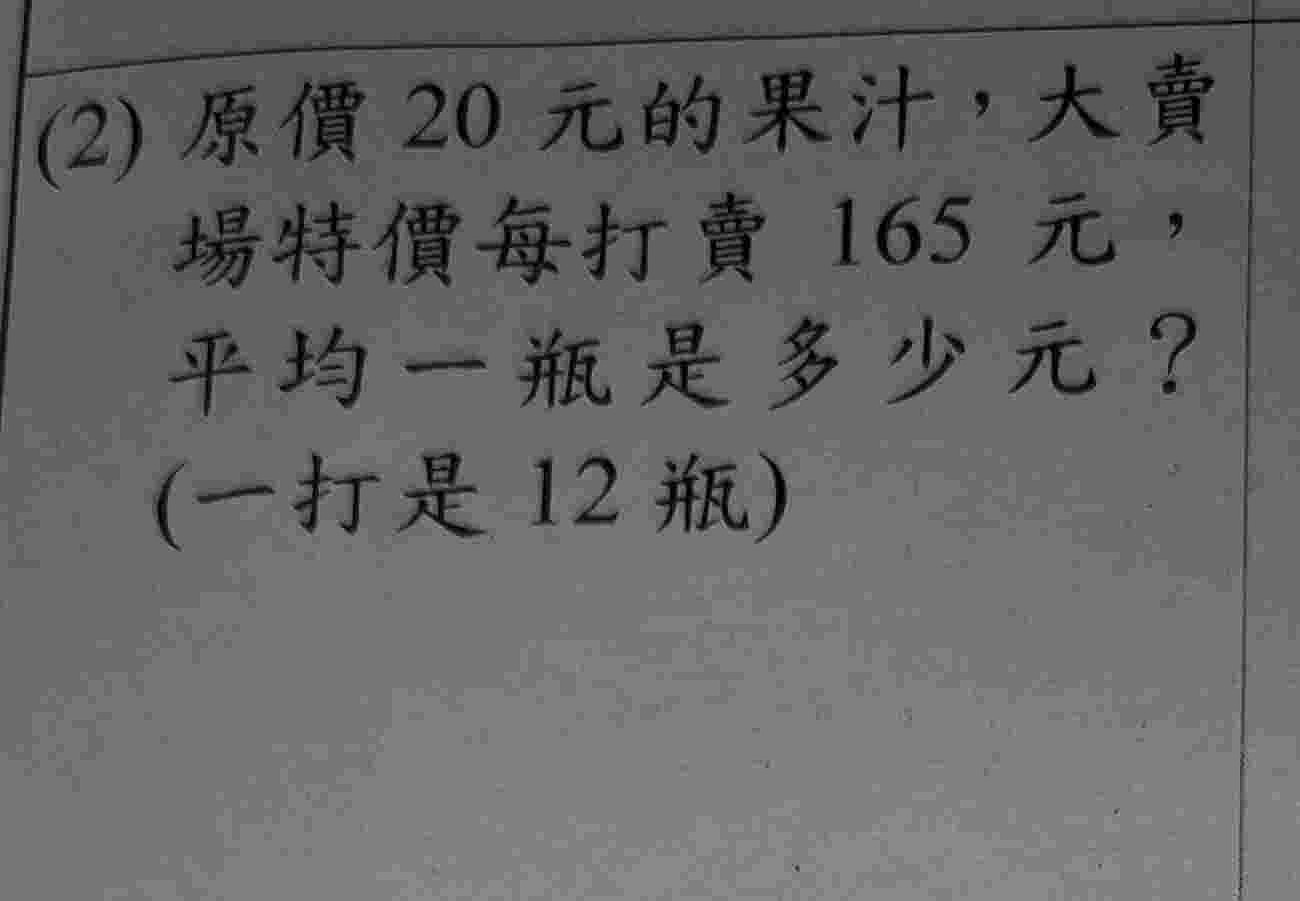 (2) 原價 20 元的果汁，大賣
場特價每打賣 165 元，
平均一瓶是多少元？
(一打是 12 瓶)